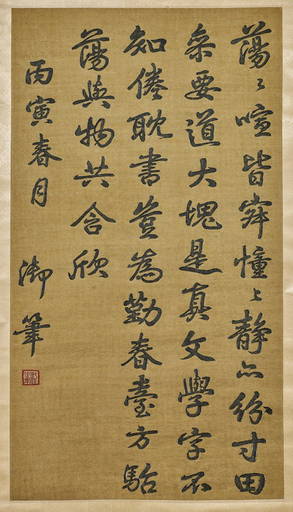 蕩〻喧皆憧〻靜亦紛寸田
要道大塊是真文學字不
知倦耽書豈為勤春臺方駘
蕩與物共含欣
丙寅春月
御筆